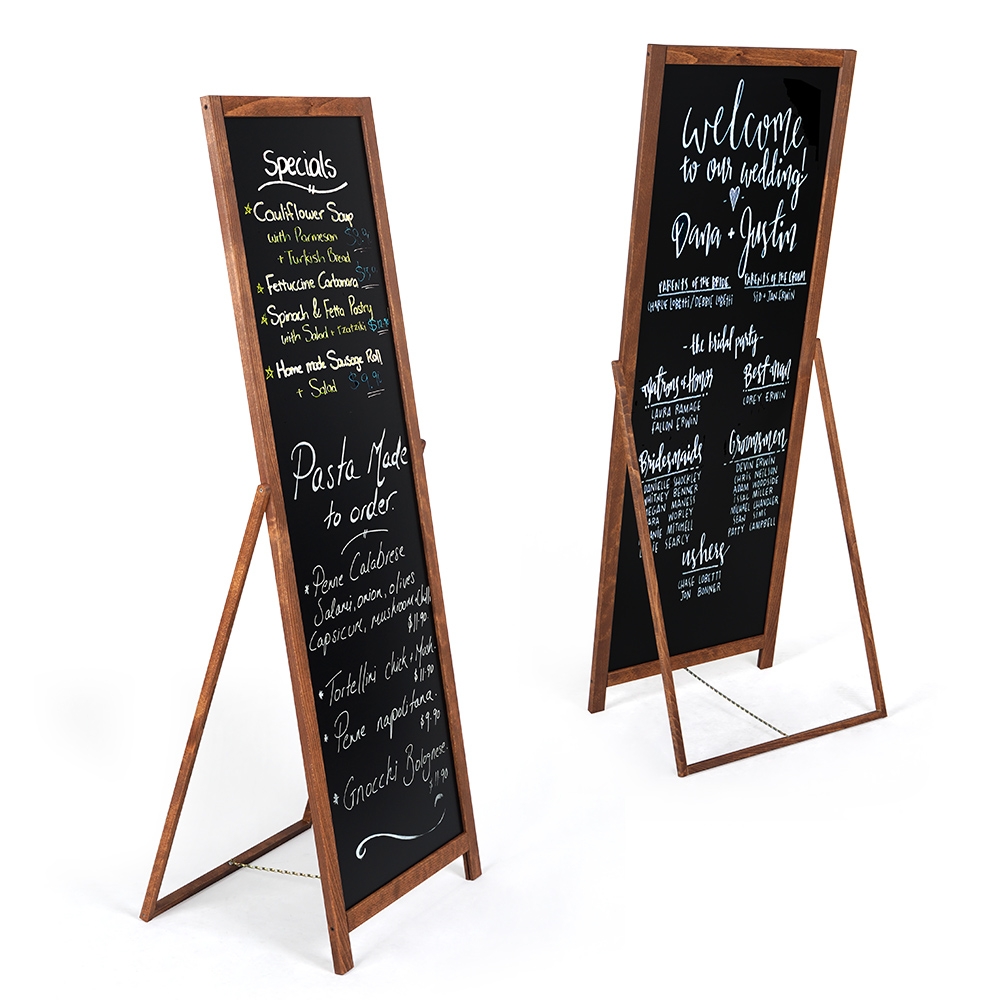 Specials
Cauliflower Soup
with Parmesan
+ Turkish Bread
Fettuccine Carbonara
Spinach & Fetta Pastry
with Salad + Tzatziki
Home made Sausage Roll
+ Salad $9.90
Pasta Made
to order.
* Penne Calabrese
Salami, onion, olives
Capsicum, mushroom
$11.90
* Tortellini chick + Mush.
$11.90
* Penne napolitana.
$9.90
* Gnocchi Bolognese.
$11.90
welcome
to our wedding!
Dana + Justin
PARENTS OF THE BRIDE
CHARLIE LOBETTI/DEBBIE LOBETTI
PARENTS OF THE GROOM
SID + JAN ERWIN
- the bridal party -
Matrons of Honor
LAURA RAMAGE
FALLON ERWIN
Best Man
COREY ERWIN
Bridesmaids
DANIELLE SHOCKLEY
WHITNEY BENNER
MEGAN MANESS
WORLEY
MITCHELL
SEARCY
Groomsmen
DEVIN ERWIN
CHRIS NEILSON
ADAM WOODSIDE
MILLER
MICHAEL CHANDLER
SEAN SIMS
PATTY CAMPBELL
ushers
CHASE LOBETTI
JON BONNER